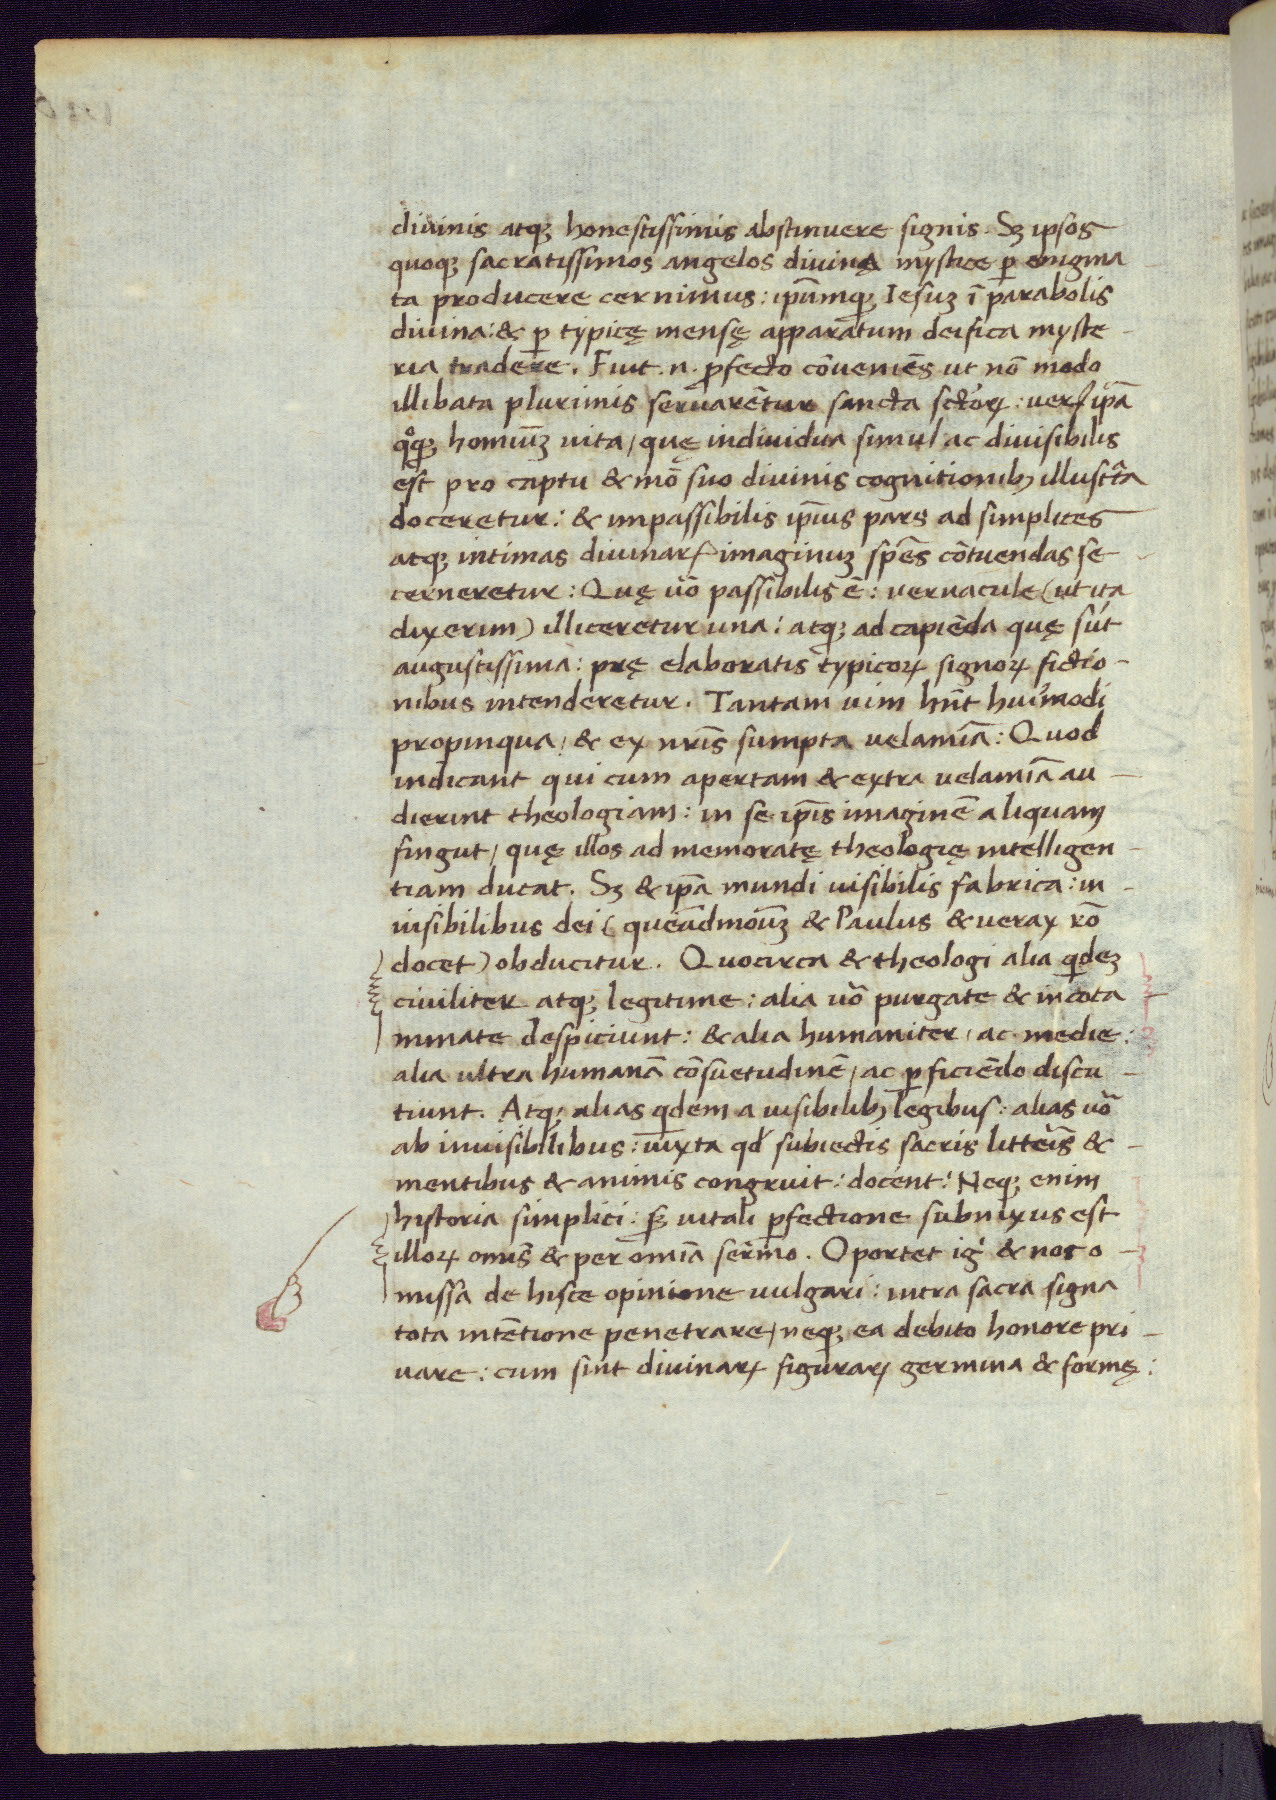 divinis atqꝫ honestissimis abstinuere signis. Sꝫ ipsos
quoqꝫ sacratissimos angelos divinę mystice ꝑ enigma
ta producere cernimus: ip̄umqꝫ Iesuꝫ ī parabolis
divina: & ꝑ typicę mensę apparatum deifica myste-
ria tradere. Fuit .n. ꝓfecto cōueniēs ut nō modo
illibata plurimis seruarētur sancta sctōꝝ: ueꝝ ip̄a
qͦqꝫ homiūꝫ uita, quę individua simul ac divisibilis
est pro captu & mō suo divinis cognitionibꝫ illustᷓta
doceretur: & impassibilis ip̄ius pars ad simplices
atqꝫ intimas divinaꝝ imaginuꝫ sp̄es cōtuendas se-
cerneretur: Quę ūo passibilis ē: vernacule (ut ita
dixerim) illiceretur una: atqꝫ ad capiēda quę sūt
augustissima: prę elaboratis typicoꝝ signoꝝ fictio-
nibus intenderetur. Tantam uim hn̄t huiꝰmodi
propinqua, & ex nr̄is sumpta uelamīa: Quod
indicant qui cum apertam & extra uelamīa au-
dierint theologiam: in se ip̄is imaginē aliquam
fingūt, quę illos ad memoratę theologię intelligen-
tiam ducat. Sꝫ & ip̄a mundi uisibilis fabrica: in-
uisibilibus dei (queādmoūꝫ & Paulus & uerax rō
docet) obducitur. Quocirca & theologi alia qͥdeꝫ
ciuiliter atqꝫ legitime: alia ūo purgate & incota-
minate despiciunt: & alia humaniter, ac medie:
alia ultra humanā cōsuetudinē, ac ꝑficiēdo discu-
tiunt. Atqꝫ alias qͥdem a uisibilibꝫ legibus: alias ūo
ab inuisibilibus: iuxta qd̛ subiectis sacris litteris̄ &-
mentibus & animis congruit: docent: Neqꝫ enim
historia simplici: sꝫ uitali ꝑfectione subnixus est
illoꝝ omis̄ & per omīa sermo. Oportet igͥ & nos o-
missa de hisce opinione uulgari: intra sacra signa
tota intētione penetrare, neqꝫ ea debito honore pri-
uare: cum sint divinaꝝ figuraꝝ germina & formę: